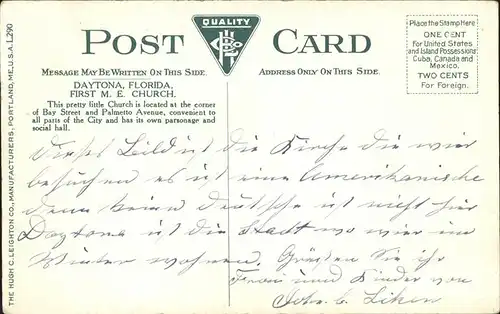 QUALITY
POST CARD
MESSAGE MAY BE WRITTEN ON THIS SIDE.
ADDRESS ONLY ON THIS SIDE.
Place the Stamp Here
ONE CENT
For United States
and Island Possessions
Cuba, Canada and
Mexico,
TWO CENTS
For Foreign.
DAYTONA, FLORIDA,
FIRST M. E. CHURCH.
This pretty little Church is located at the corner
of Bay Street and Palmetto Avenue, convenient to
all parts of the City and has its own parsonage and
social hall.
THE HUGH C. LEIGHTON CO., MANUFACTURERS, PORTLAND, ME., U.S.A.
Dieses Bild ist die Kirche die wir
besuchen es ist eine Amerikanische
denn keine deutsche ist nicht hier
Daytona ist die Stadt wo wir im
Winter wohnen. Grüßen Sie ihr
Frau und Kinder von